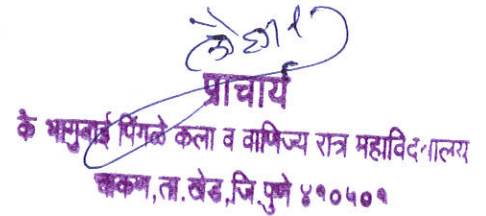 प्राचार्य
के भागुबाई पिंगळे कला व वाणिज्य रात्र महाविद्यालय
चाकण,ता.खेड,जि.पुणे ४१०५०१